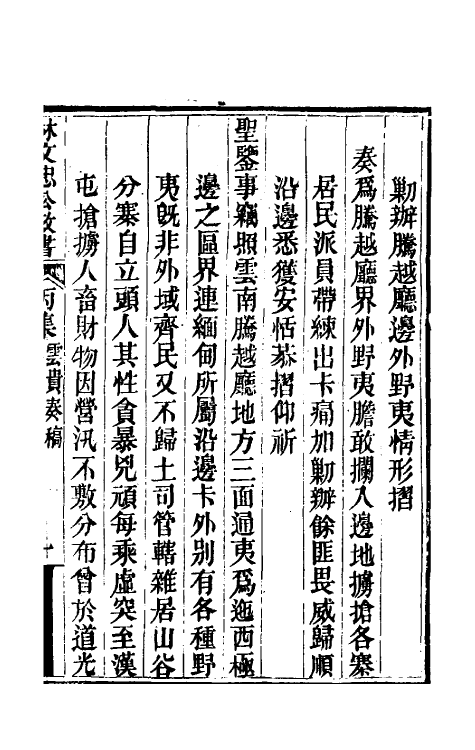 勦辦騰越廳邊外野夷情形摺
奏爲騰越廳界外野夷膽敢攔入邊地擄搶各寨
居民派員帶練出卡痛加勦辦餘匪畏威歸順
沿邊悉獲安恬恭摺仰祈
聖鑒事竊照雲南騰越廳地方三面通夷爲迤西極
邊之區界連緬甸所屬沿邊卡外別有各種野
夷旣非外域齊民又不歸土司管轄雜居山谷
分寨自立頭人其性貪暴兇頑每乘虛突至漢
屯搶擄人畜財物因營汛不敷分布曾於道光
林文忠公政書 丙集 雲貴奏稿